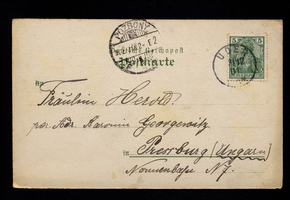 POZSONY
Reichspost
5
Postkarte
An
Fräulein Herold
per Adr. Baronin Georgewitz
in Pressburg (Ungarn)
Nonnenbahn N 7.